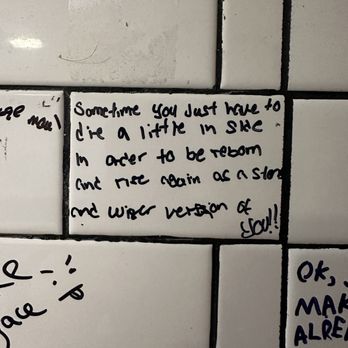 Sometime you just have to
die a little in side
in order to be reborn
and rise again as a
and wiser version of
you!!
man
ace
OK,
MAK
ALREA